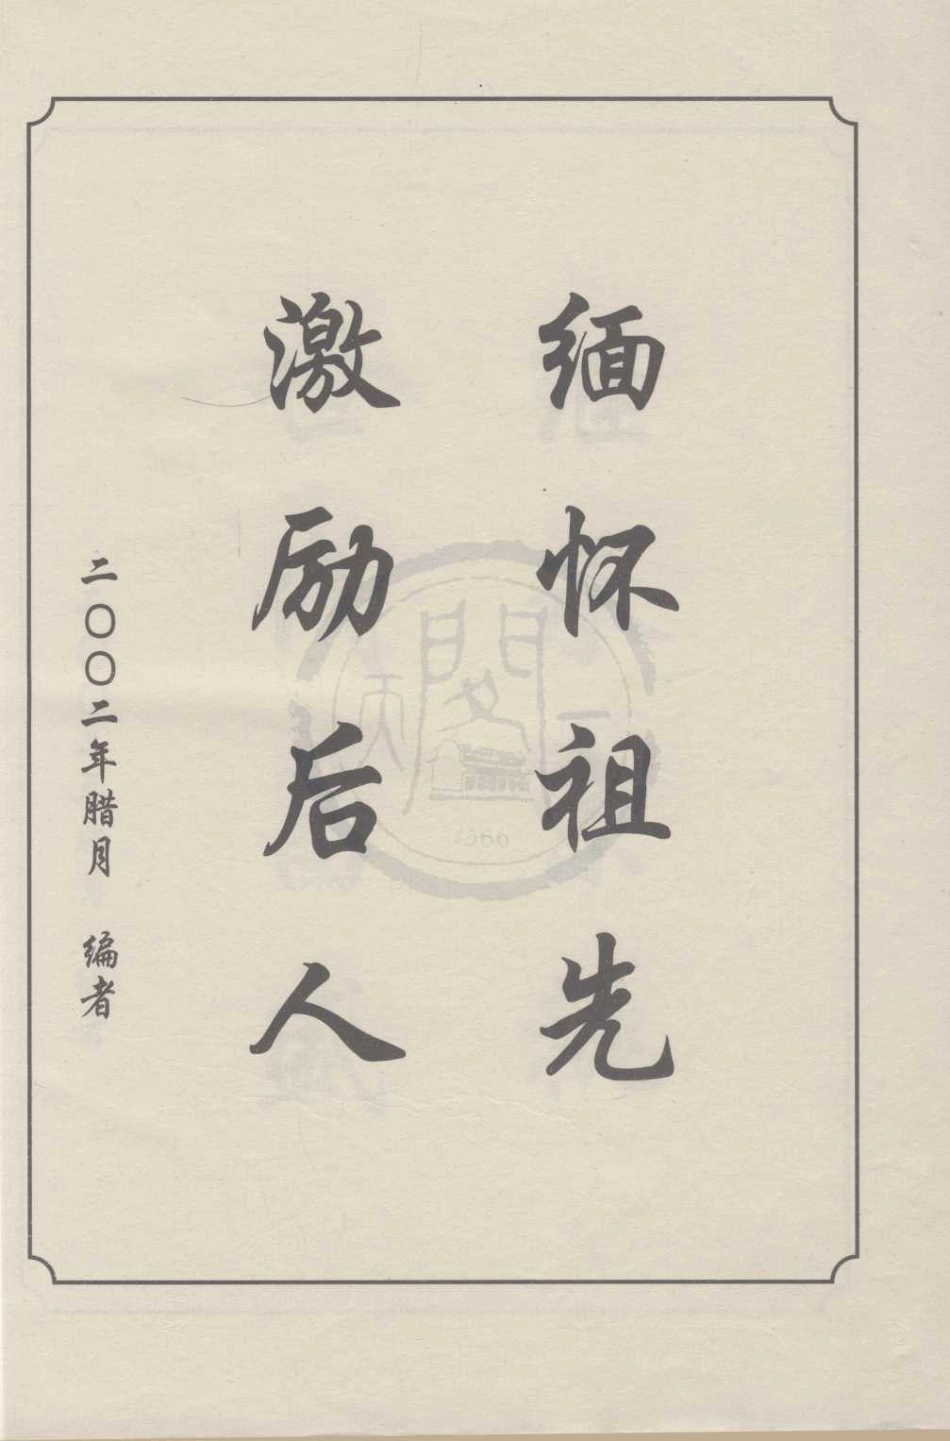 缅怀祖先
激励后人
二〇〇二年腊月 编者
天一阁
1566